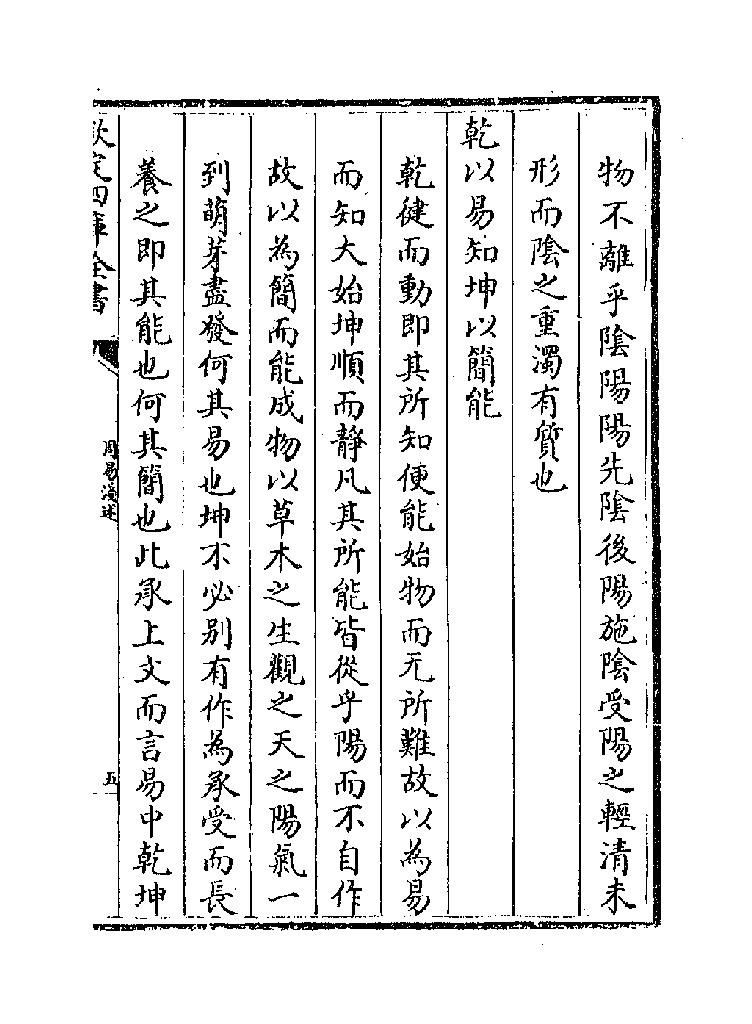 物不離乎陰陽陽先陰後陽施陰受陽之輕清未
形而陰之重濁有質也
乾以易知坤以簡能
乾健而動即其所知便能始物而无所難故以為易
而知大始坤順而靜凡其所能皆從乎陽而不自作
故以為簡而能成物以草木之生觀之天之陽氣一
到萌芽盡發何其易也坤不必别有作為承受而長
養之即其能也何其簡也此承上文而言易中乾坤
欽定四庫全書
周易淺述
五